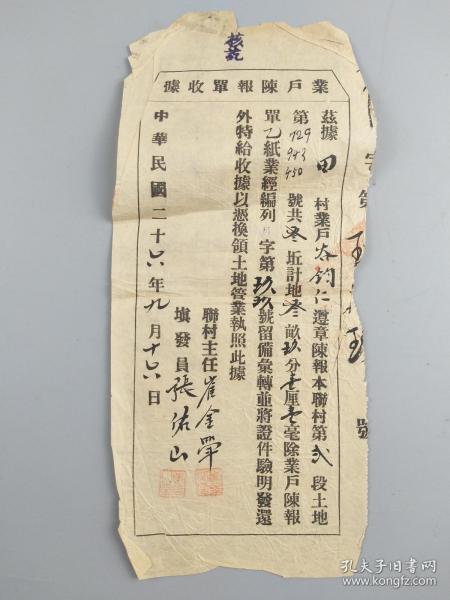 核訖
業戶陳報單收據
茲據 田 村業戶 鈞仁 遵章陳報本聯村第 貳 段土地
第 729 943 450 號共 叁 坵計地 叁 畝 玖 分 壹 厘 壹 毫除業戶陳報
單乙紙業經編列 字第 玖 號留備彙轉並將證件驗明發還
外特給收據以憑換領土地管業執照此據
聯村主任 崔金
填發員 張佑山
中華民國二十六年九月十六日
字第
號
孔夫子旧书网
www.kongfz.com